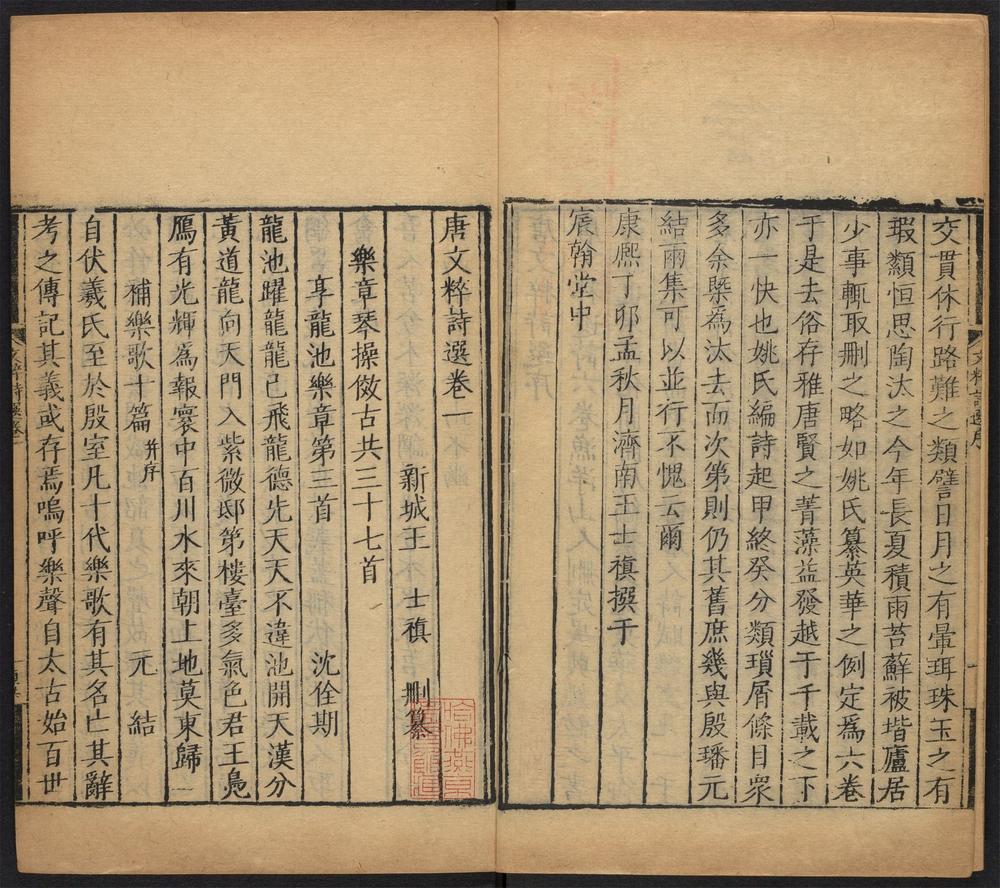 交貫休行路難之類譬日月之有暈珥珠玉之有
瑕纇恒思陶汰之今年長夏積雨苔蘚被堦廬居
少事輒取刪之略如姚氏纂英華之例定爲六卷
于是去俗存雅唐賢之菁藻益發越于千載之下
亦一快也姚氏編詩起甲終癸分類瑣屑條目衆
多余槩爲汰去而次第則仍其舊庶幾與殷璠元
結兩集可以並行不愧云爾
康熙丁卯孟秋月濟南王士禛撰于
宸翰堂中
唐文粹詩選卷一
新城王 士禛 刪纂
樂章琴操倣古共三十七首
享龍池樂章第三首 沈佺期
龍池躍龍龍已飛龍德先天天不違池開天漢分
黃道龍向天門入紫微邸第樓臺多氣色君王鳧
鴈有光輝爲報寰中百川水來朝上地莫東歸
補樂歌十篇 并序 元 結
自伏羲氏至於殷室凡十代樂歌有其名亡其辭
考之傳記其義或存焉嗚呼樂聲自太古始百世